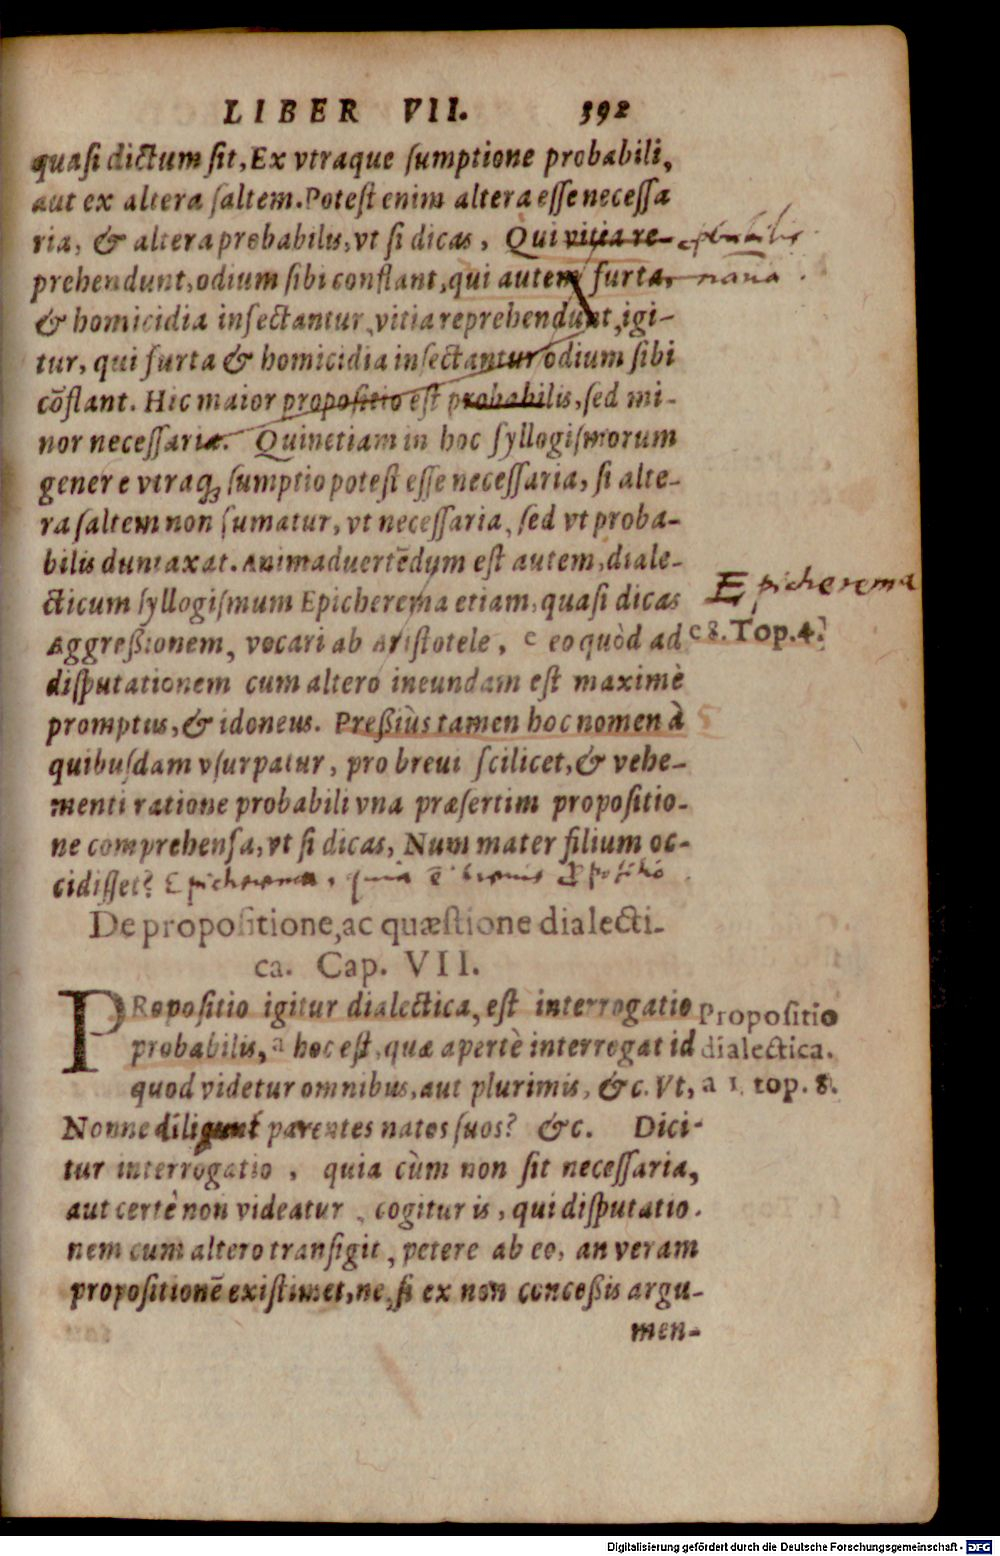 LIBER VII. 392
quasi dictum sit, Ex vtraque sumptione probabili,
aut ex altera saltem. Potest enim altera esse necessa
ria, & altera probabilis, vt si dicas, Qui vitia re- probabilis
prehendunt, odium sibi conflant, qui autem furta,
& homicidia insectantur, vitia reprehendunt, igi-
tur, qui furta & homicidia insectantur odium sibi
cõflant. Hic maior propositio est probabilis, sed mi-
nor necessaria. Quinetiam in hoc syllogismorum
genere vtraq; sumptio potest esse necessaria, si alte-
ra saltem non sumatur, vt necessaria, sed vt proba-
bilis duntaxat. Animaduertẽdum est autem, diale-
cticum syllogismum Epicherema etiam, quasi dicas Epicherema
Aggreßionem, vocari ab Aristotele, c eo quòd ad c 8. Top. 4.
disputationem cum altero ineundam est maximè
promptus, & idoneus. Preßiùs tamen hoc nomen à
quibusdam vsurpatur, pro breui scilicet, & vehe-
menti ratione probabili vna præsertim propositio-
ne comprehensa, vt si dicas, Num mater filium oc-
cidisset? Epicherema, quia ẽ breuis
De propositione, ac quæstione dialecti-
ca. Cap. VII.
PRopositio igitur dialectica, est interrogatio Propositio
probabilis, a hoc est, quæ apertè interrogat id dialectica.
quod videtur omnibus, aut plurimis, &c. Vt, a 1. top. 8.
Nonne diligunt parentes natos suos? &c. Dici-
tur interrogatio, quia cùm non sit necessaria,
aut certè non videatur, cogitur is, qui disputatio-
nem cum altero transigit, petere ab eo, an veram
propositionẽ existimet, ne, si ex non conceßis argu-
men-
Digitalisierung gefördert durch die Deutsche Forschungsgemeinschaft - DFG